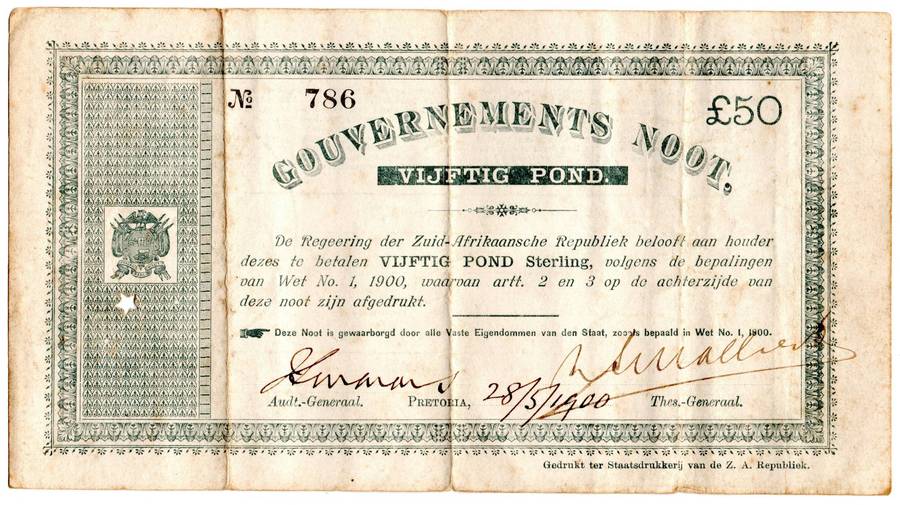 № 786
£50
GOUVERNEMENTS NOOT,
VIJFTIG POND.
De Regeering der Zuid-Afrikaansche Republiek belooft aan houder
dezes te betalen VIJFTIG POND Sterling, volgens de bepalingen
van Wet No. 1, 1900, waarvan artt. 2 en 3 op de achterzijde van
deze noot zijn afgedrukt.
Deze Noot is gewaarborgd door alle Vaste Eigendommen van den Staat, zooals bepaald in Wet No. 1, 1900.
28/5/1900
Audt.-Generaal. PRETORIA, Thes.-Generaal.
Gedrukt ter Staatsdrukkerij van de Z. A. Republiek.